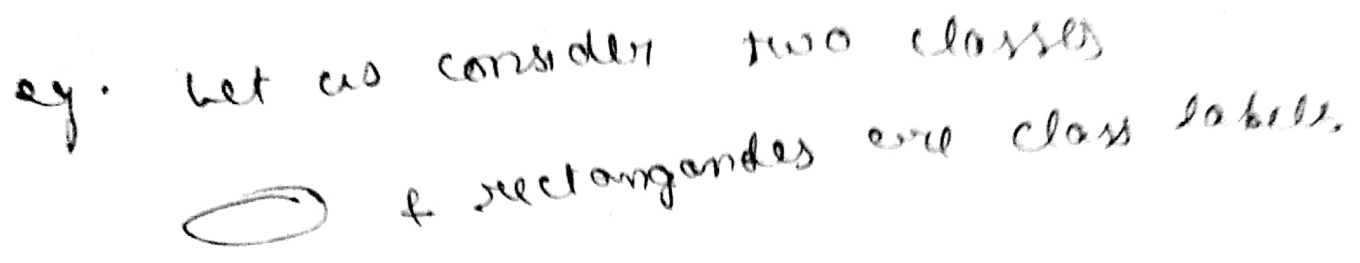 eg. Let us consider two classes
& rectangandes are class labels.